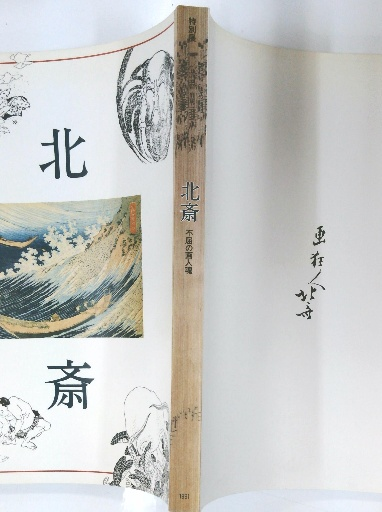 北
斎
特別展
北斎
不屈の画人魂
1991
画狂人
北斎